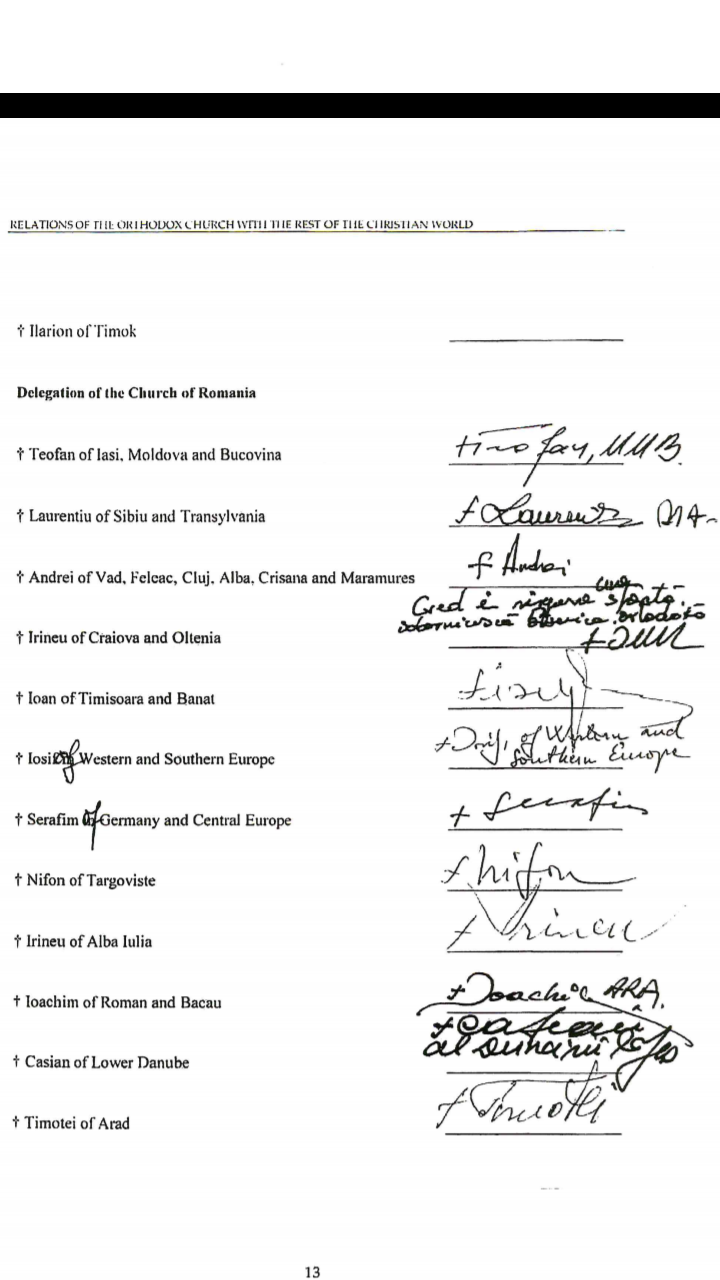 RELATIONS OF THE ORTHODOX CHURCH WITH THE REST OF THE CHRISTIAN WORLD
† Ilarion of Timok
Delegation of the Church of Romania
† Teofan of Iasi, Moldova and Bucovina
† Laurentiu of Sibiu and Transylvania
† Andrei of Vad, Feleac, Cluj, Alba, Crisana and Maramures
† Andrei
† Irineu of Craiova and Oltenia
† Ioan of Timisoara and Banat
† Iosif of Western and Southern Europe
of Western and
Southern Europe
† Serafim of Germany and Central Europe
+ Serafim
† Nifon of Targoviste
+ Nifon
† Irineu of Alba Iulia
+ Irineu
† Ioachim of Roman and Bacau
+ Ioachim
† Casian of Lower Danube
† Timotei of Arad
13